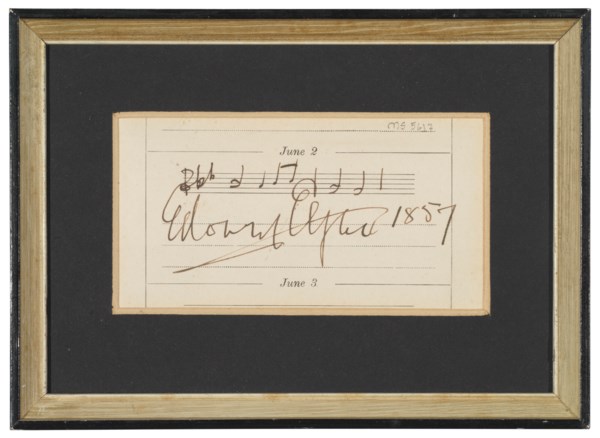 MS 5617
June 2
Edward Elgar 1857
June 3